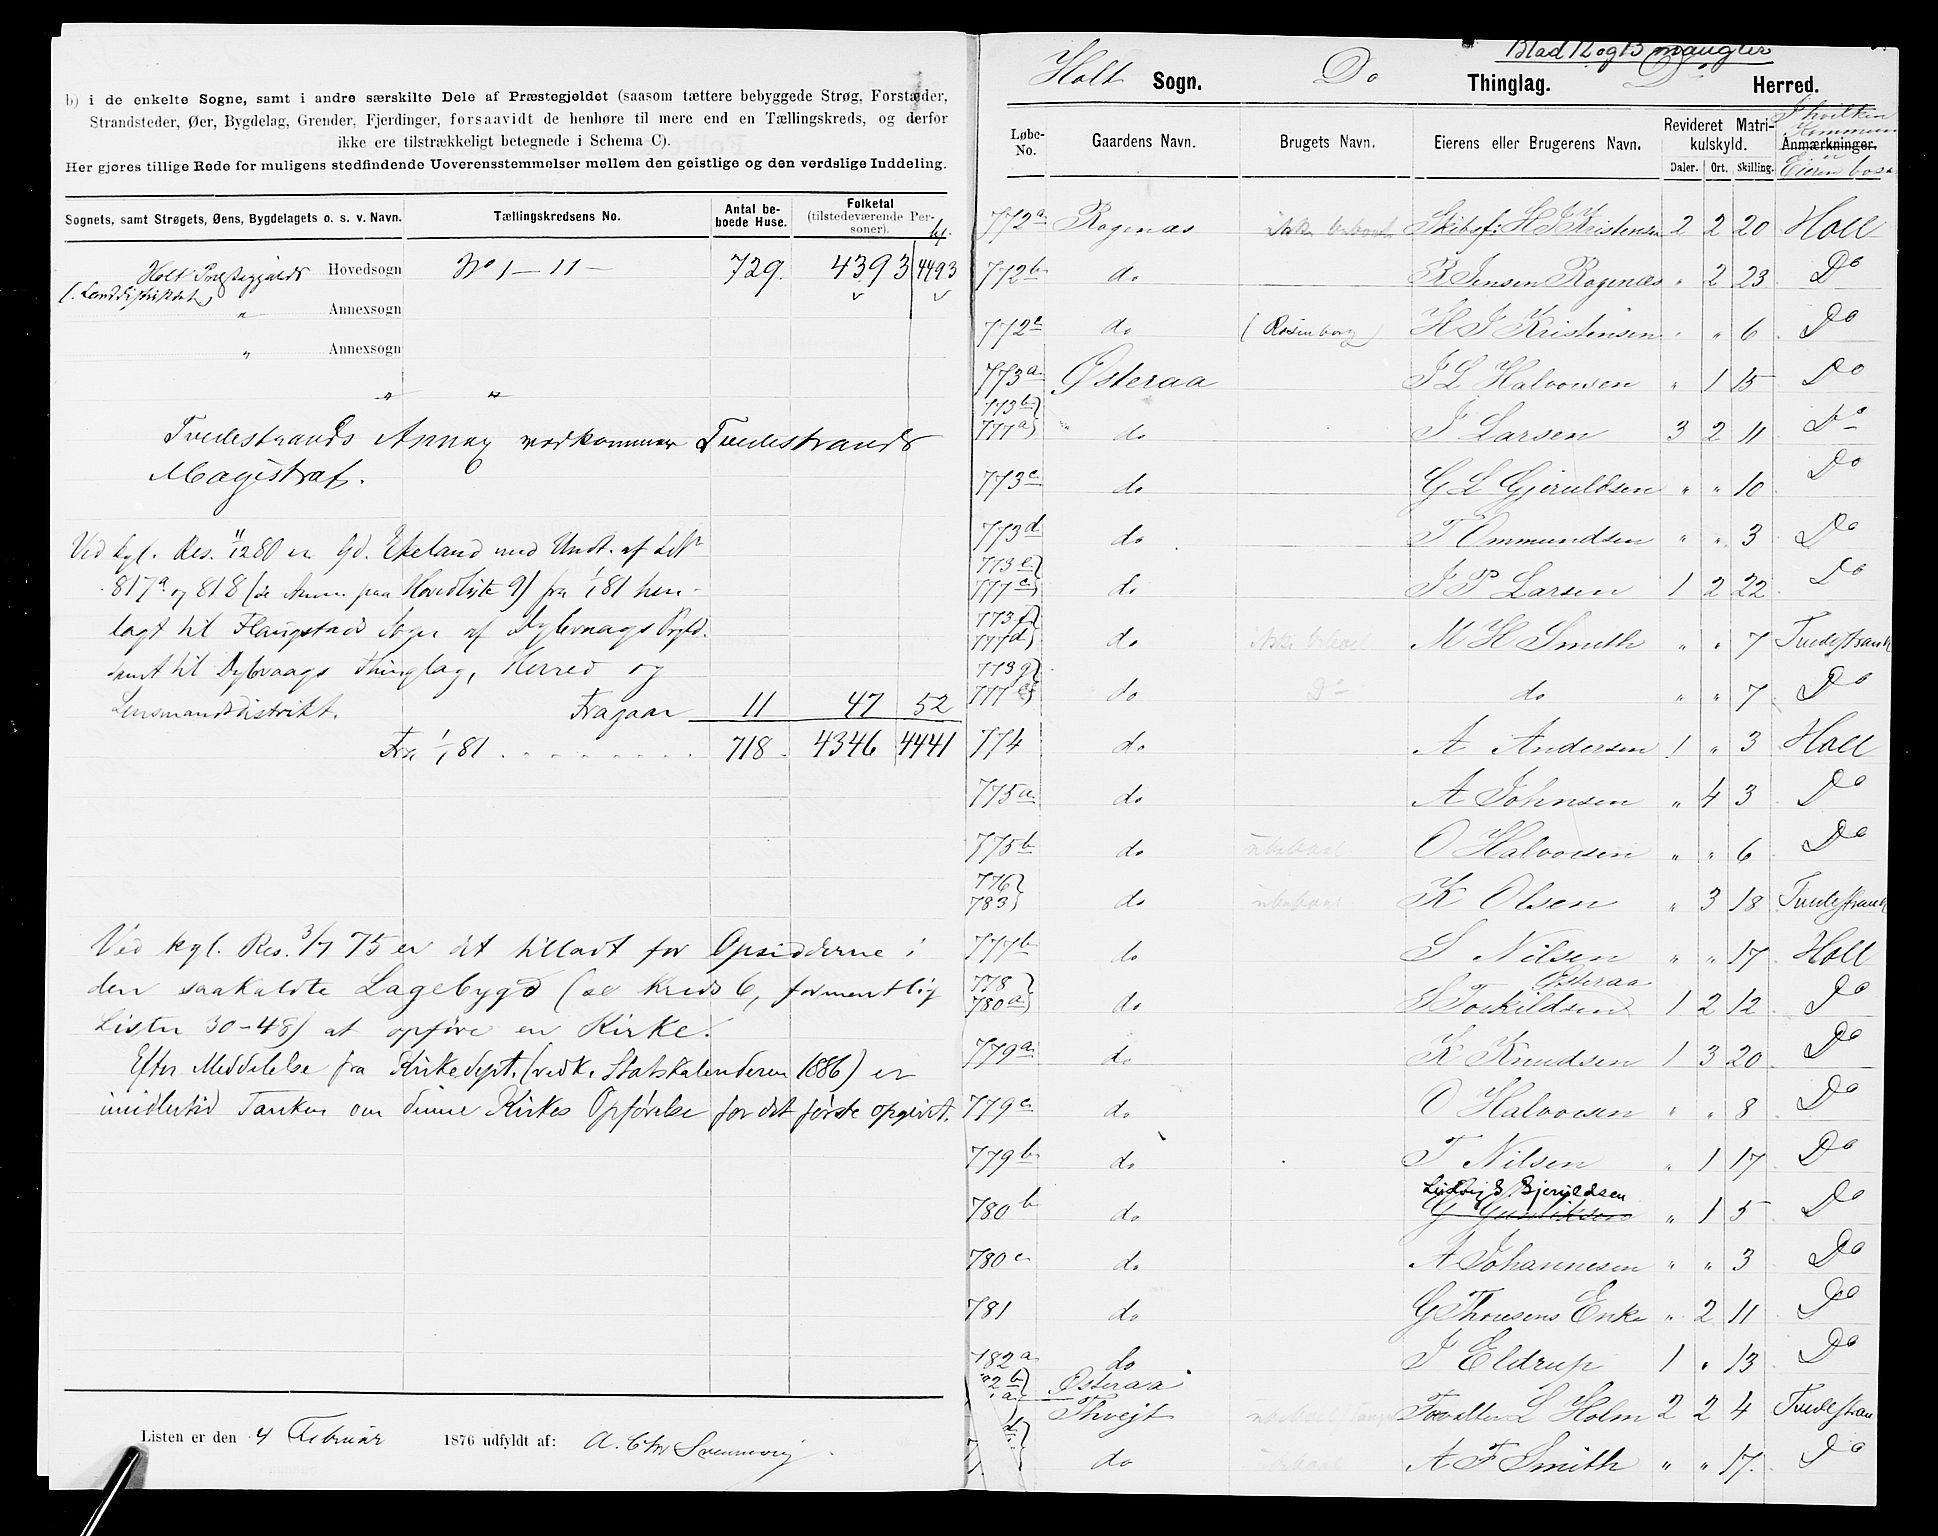 b) i de enkelte Sogne, samt i andre særskilte Dele af Præstegjeldet (saasom tættere bebyggede Strøg, Forstæder,
Strandsteder, Øer, Bygdelag, Grender, Fjerdinger, forsaavidt de henhøre til mere end en Tællingskreds, og derfor
ikke ere tilstrækkeligt betegnede i Schema C).
Her gjøres tillige Rede for muligens stedfindende Uoverensstemmelser mellem den geistlige og den verdslige Inddeling.
Sognets, samt Strøgets, Øens, Bygdelagets o. s. v. Navn. Tællingskredsens No. Antal beboede Huse. Folketal (tilstedeværende Personer). hj.
Holt Præstegjelds Hovedsogn No 1 - 11 - 729. 4393 4493
(Landdistriktet)
" Annexsogn
" Annexsogn
" "
Tvedestrands Annex vedkommer Tvedestrands
Magistrat.
Ved kgl. Res. 11/12 80 er Gd. Ekeland med Undt. af LNr
817a og 818 (se Anm. paa Hovedliste 9) fra 1/1 81 hen-
lagt til Flangstads Sogn af Dybvaags Prgld.
samt til Dybvaags Thinglag, Herred og
Lensmandsdistrikt. Fragaar 11 47 52
Fra 1/1 81 . . . . . . . . 718. 4346 4441
Ved kgl. Res. 3/7 75 er det tilladt for Opsidderne i
den saakaldte Lagebygd (se Kreds 6, formentlig
Lister 30-48) at opføre en Kirke.
Efter Meddelelse fra Kirkedept. (vedk. Statskalenderen 1886) er
imidlertid Tanken om denne Kirkes Opførelse for det første opgivet.
Listen er den 4 Februar 1876 udfyldt af: A. Chr
Blad 12 og 13 mangler
Holt Sogn. Do Thinglag. Do Herred.
Løbe-No. Gaardens Navn. Brugets Navn. Eierens eller Brugerens Navn. Revideret Matrikulskyld. Daler. Ort. Skilling. Anmærkninger. I hvilken Kommune er Eieren bosat
772a Ragenæs ikke beboet Skibsf: H J Kristensen 2 2 20 Holt
772b do R Jensen Ragenæs " 2 23 Do
772c do (Rosenborg) H J Kristensen " " 6 Do
773a Østeraa J L Halvorsen " 1 15 Do
773b
777a do J Larsen 3 2 11 Do
773c do G L Gjeruldsen " " 10 Do
773d do T Ommundsen " " 3 Do
773e
777c do J P Larsen 1 2 22 Do
773f
777d do ikke beboet M H Smith " " 7 Tvedestrand
773g
777e do Do do " " 7 Do
774 do A Andersen 1 " 3 Holt
775a do A Johnsen " 4 3 Do
775b do ubeboet O Halvorsen " " 6 Do
776
783 do ubeboet K Olsen " 3 18 Tvedestrand
777b do S Nilsen " " 17 Holt
778 Østeraa
780a do S Torkildsen 1 2 12 Do
779a do K Knudsen 1 3 20 Do
779c do O Halvorsen " " 8 Do
779b do T Nilsen " 1 17 Do
Ludvig S Gjeruldsen
780b do G Gundersen " 1 5 Do
780c do A Johannesen " " 3 Do
781 do G Thorsens Enke " 2 11 Do
782a do J Eldrup 1 " 13 Do
2b Østeraa
a Thvejt ubeboet L Holm 2 2 4 Tvedestran
d do ubeboet A F Smith " " 17. Do